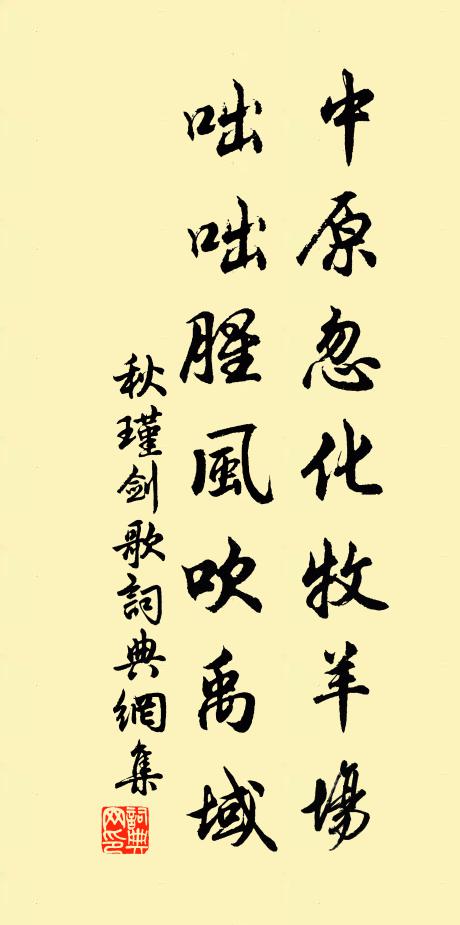 中原忽化牧羊場
咄咄腥風吹禹域
秋瑾劍歌詞典網集
詞典网印